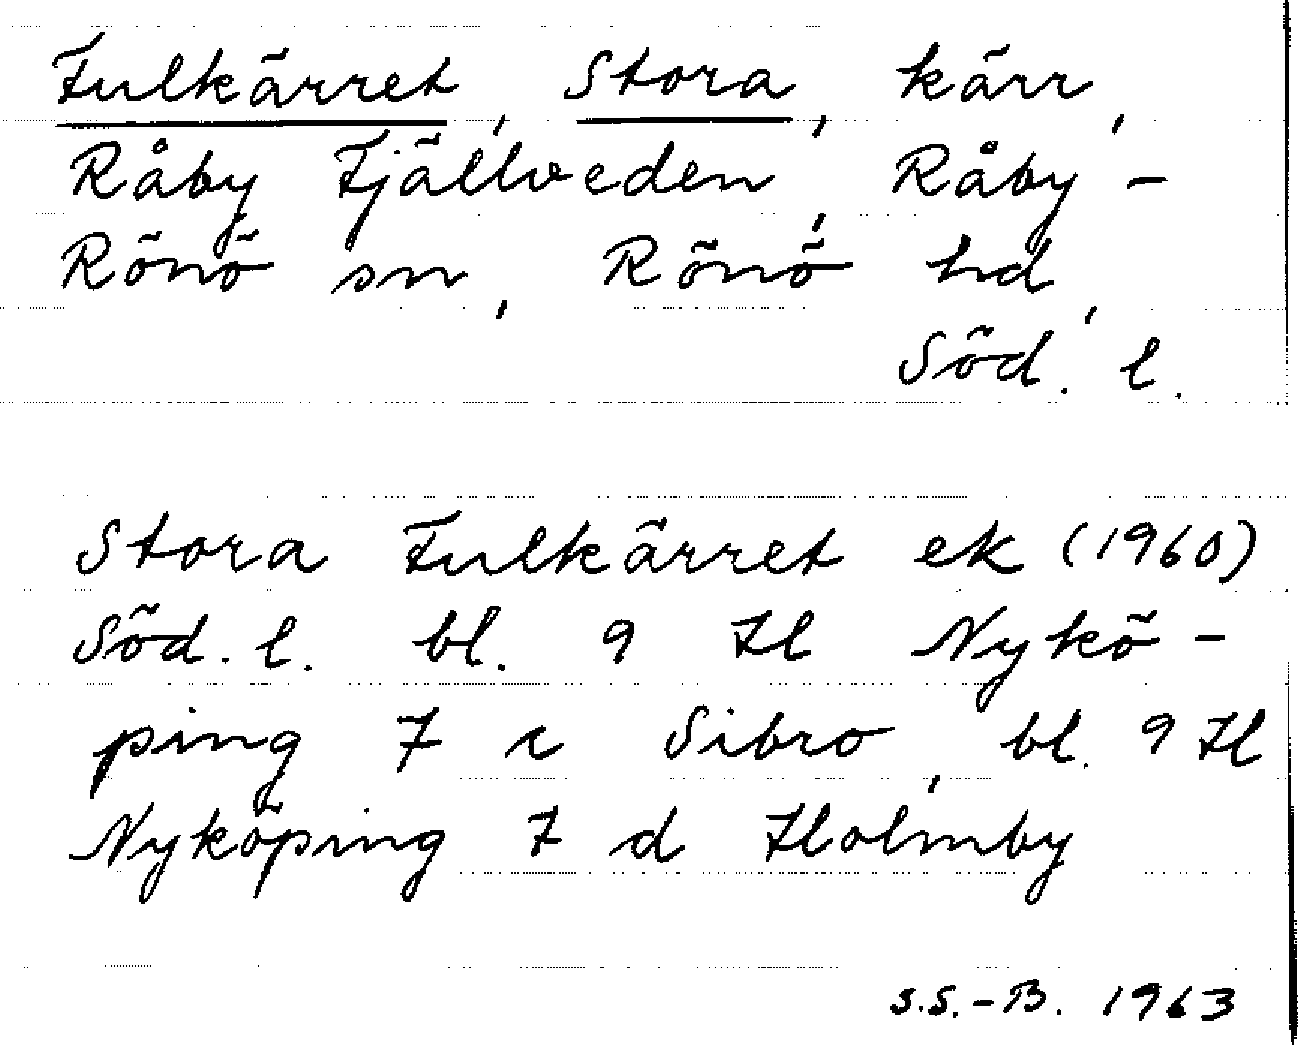 Fulkärret, Stora, kärr,
Råby Fjällveden, Råby-
Rönö sn, Rönö hd,
Söd. l.
Stora Fulkärret ek (1960)
Söd. l. bl. 9 H Nykö-
ping 7 c Sibro, bl. 9 H
Nyköping 7 d Holmby
S.S.-B. 1963